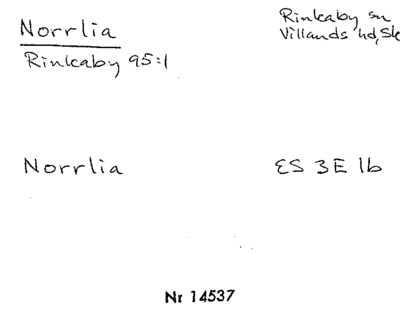 Norrlia
Rinkaby 95:1
Rinkaby sn
Villands hd, Sk
Norrlia
ES 3E 1b
Nr 14537